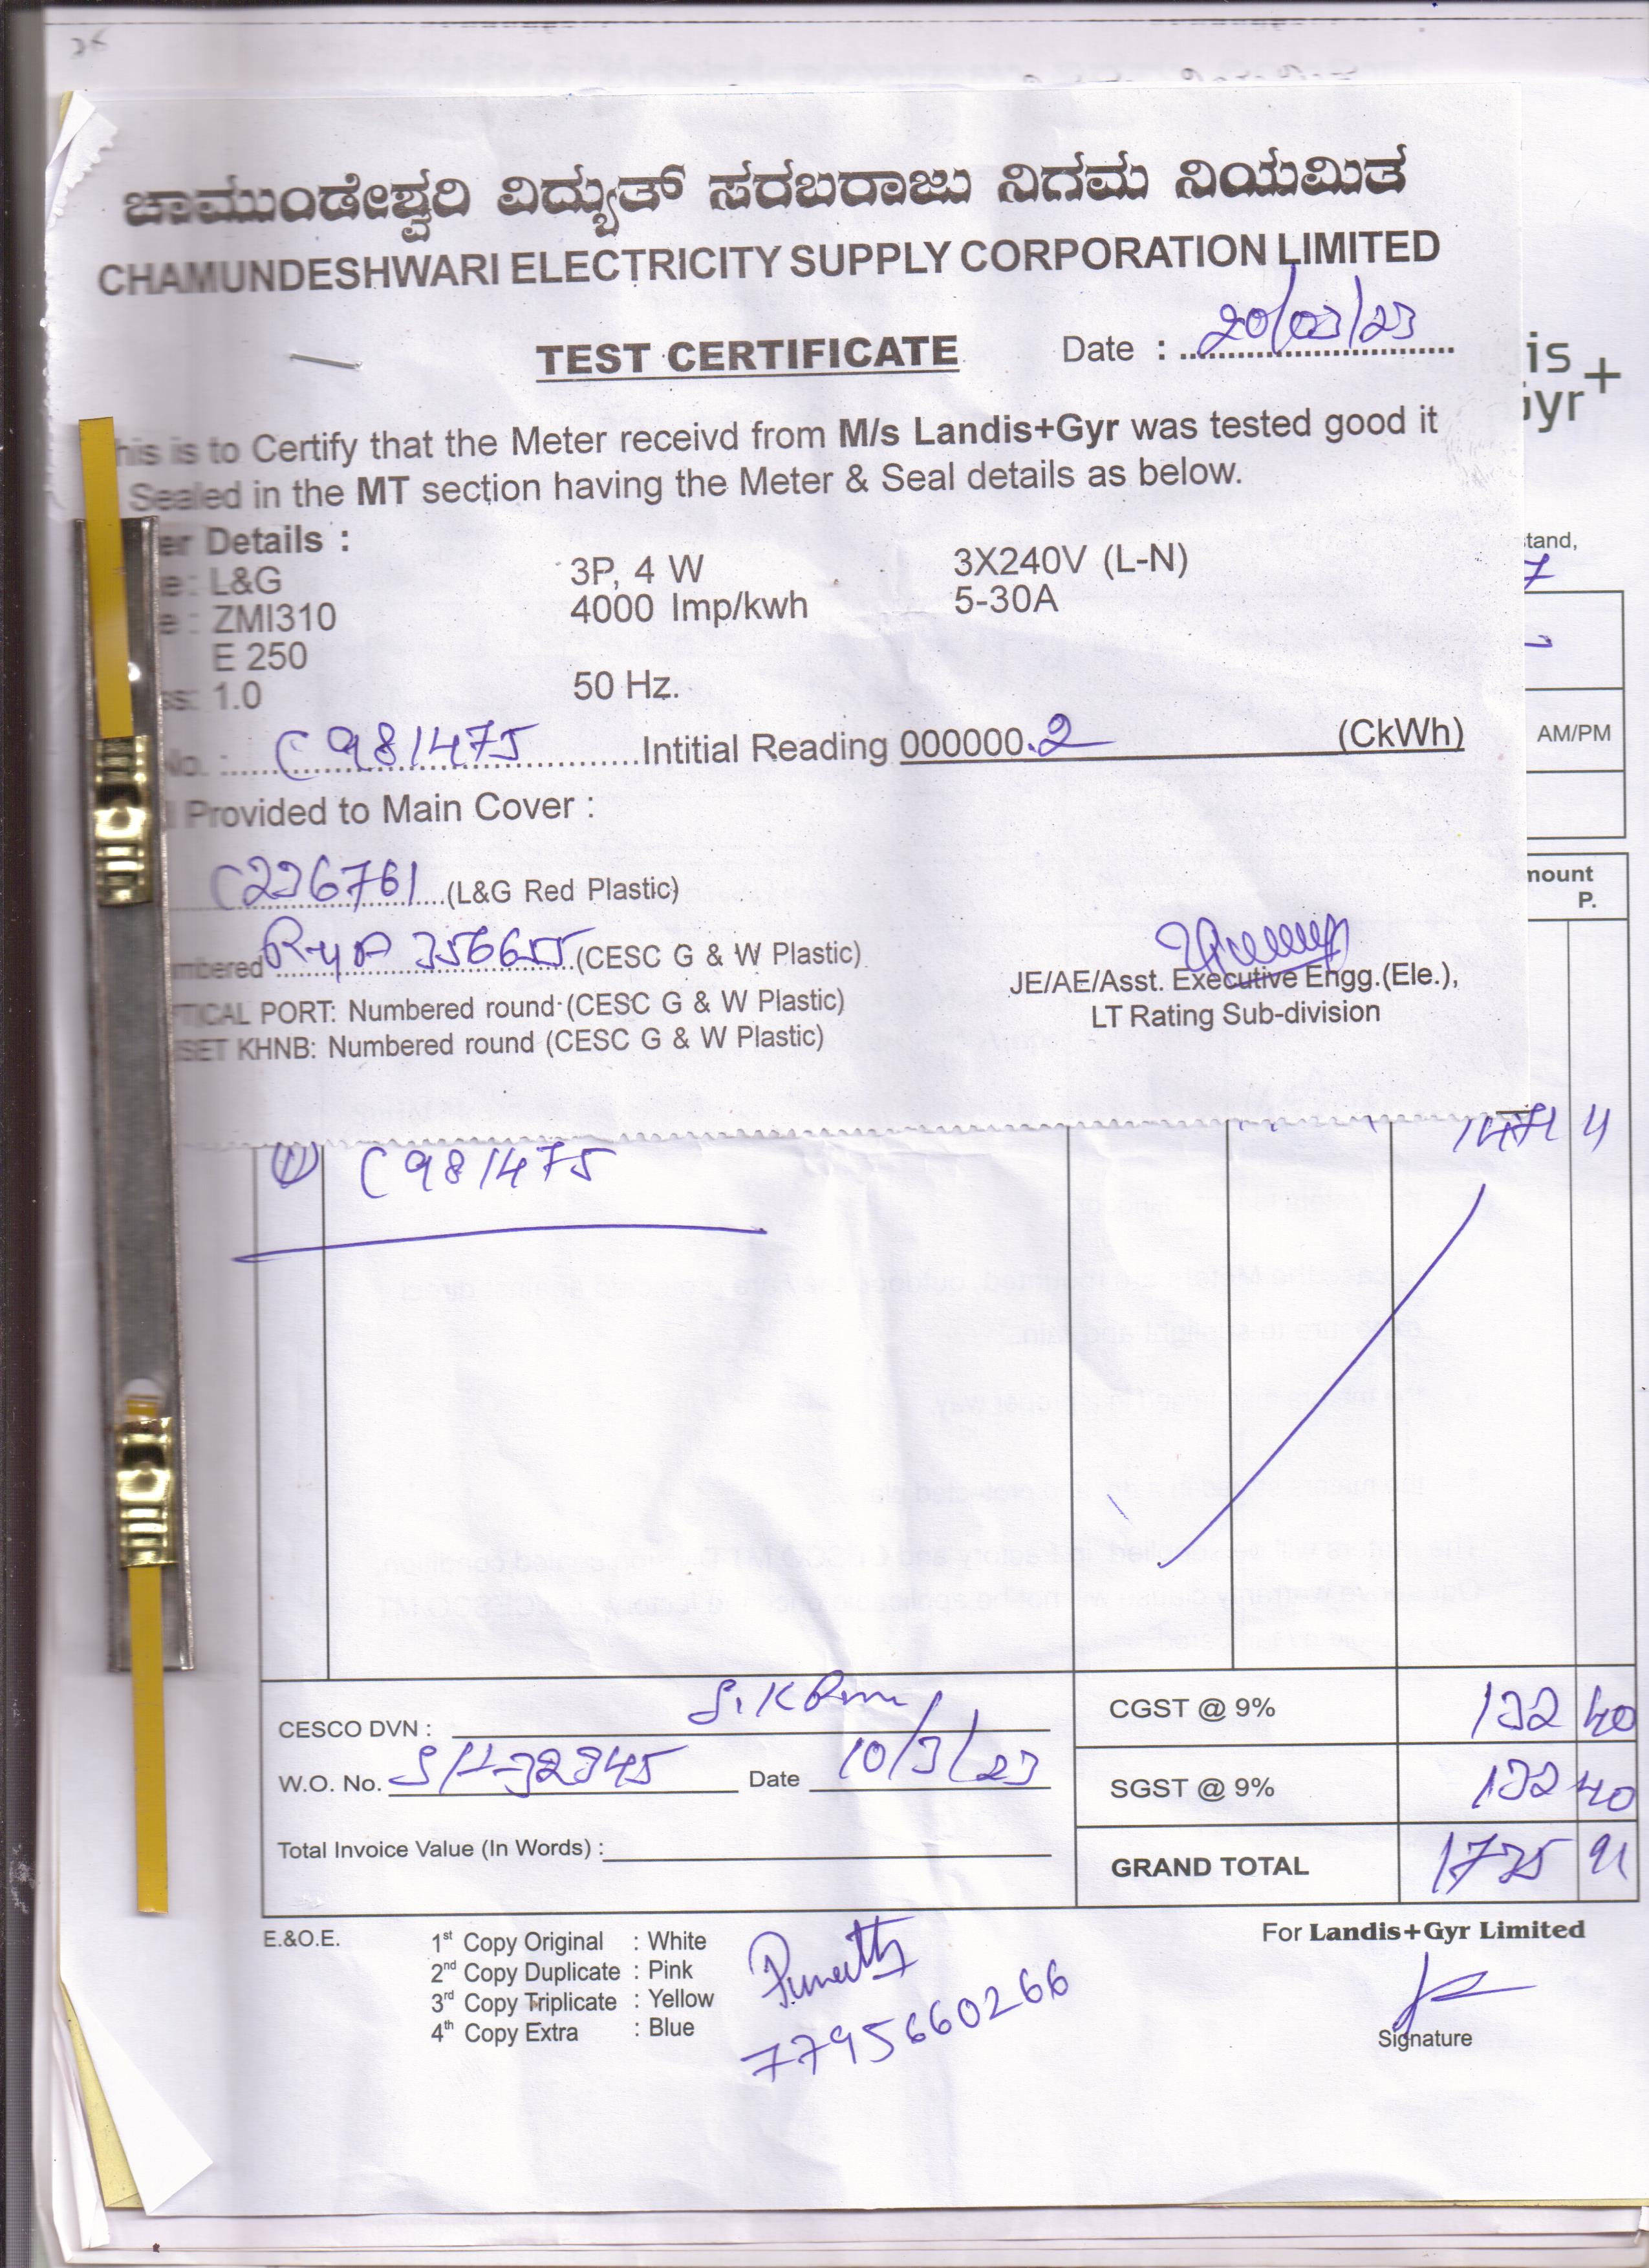 ಚಾಮುಂಡೇಶ್ವರಿ ವಿದ್ಯುತ್ ಸರಬರಾಜು ನಿಗಮ ನಿಯಮಿತ
CHAMUNDESHWARI ELECTRICITY SUPPLY CORPORATION LIMITED
TEST CERTIFICATE Date : 20/03/23
is
yr+
his is to Certify that the Meter receivd from M/s Landis+Gyr was tested good it
Sealed in the MT section having the Meter & Seal details as below.
er Details :
tand,
7
e : L&G 3P, 4 W 3X240V (L-N)
e : ZMI310 4000 Imp/kwh 5-30A
E 250
ss: 1.0 50 Hz.
No. : C981475 Intitial Reading 000000.2 (CkWh)
AM/PM
Provided to Main Cover :
mount
P.
C236761 (L&G Red Plastic)
mbered 356655 (CESC G & W Plastic)
JE/AE/Asst. Executive Engg.(Ele.),
TICAL PORT: Numbered round (CESC G & W Plastic)
LT Rating Sub-division
SET KHNB: Numbered round (CESC G & W Plastic)
1471 11
1) C981475
CESCO DVN :
CGST @ 9% 132 40
W.O. No. Date 10/3/23
SGST @ 9% 132 40
Total Invoice Value (In Words) :
GRAND TOTAL 1735 91
E.&O.E.
1st Copy Original : White
2nd Copy Duplicate : Pink
3rd Copy Triplicate : Yellow
4th Copy Extra : Blue
Puneeth
7795660266
For Landis+Gyr Limited
Signature